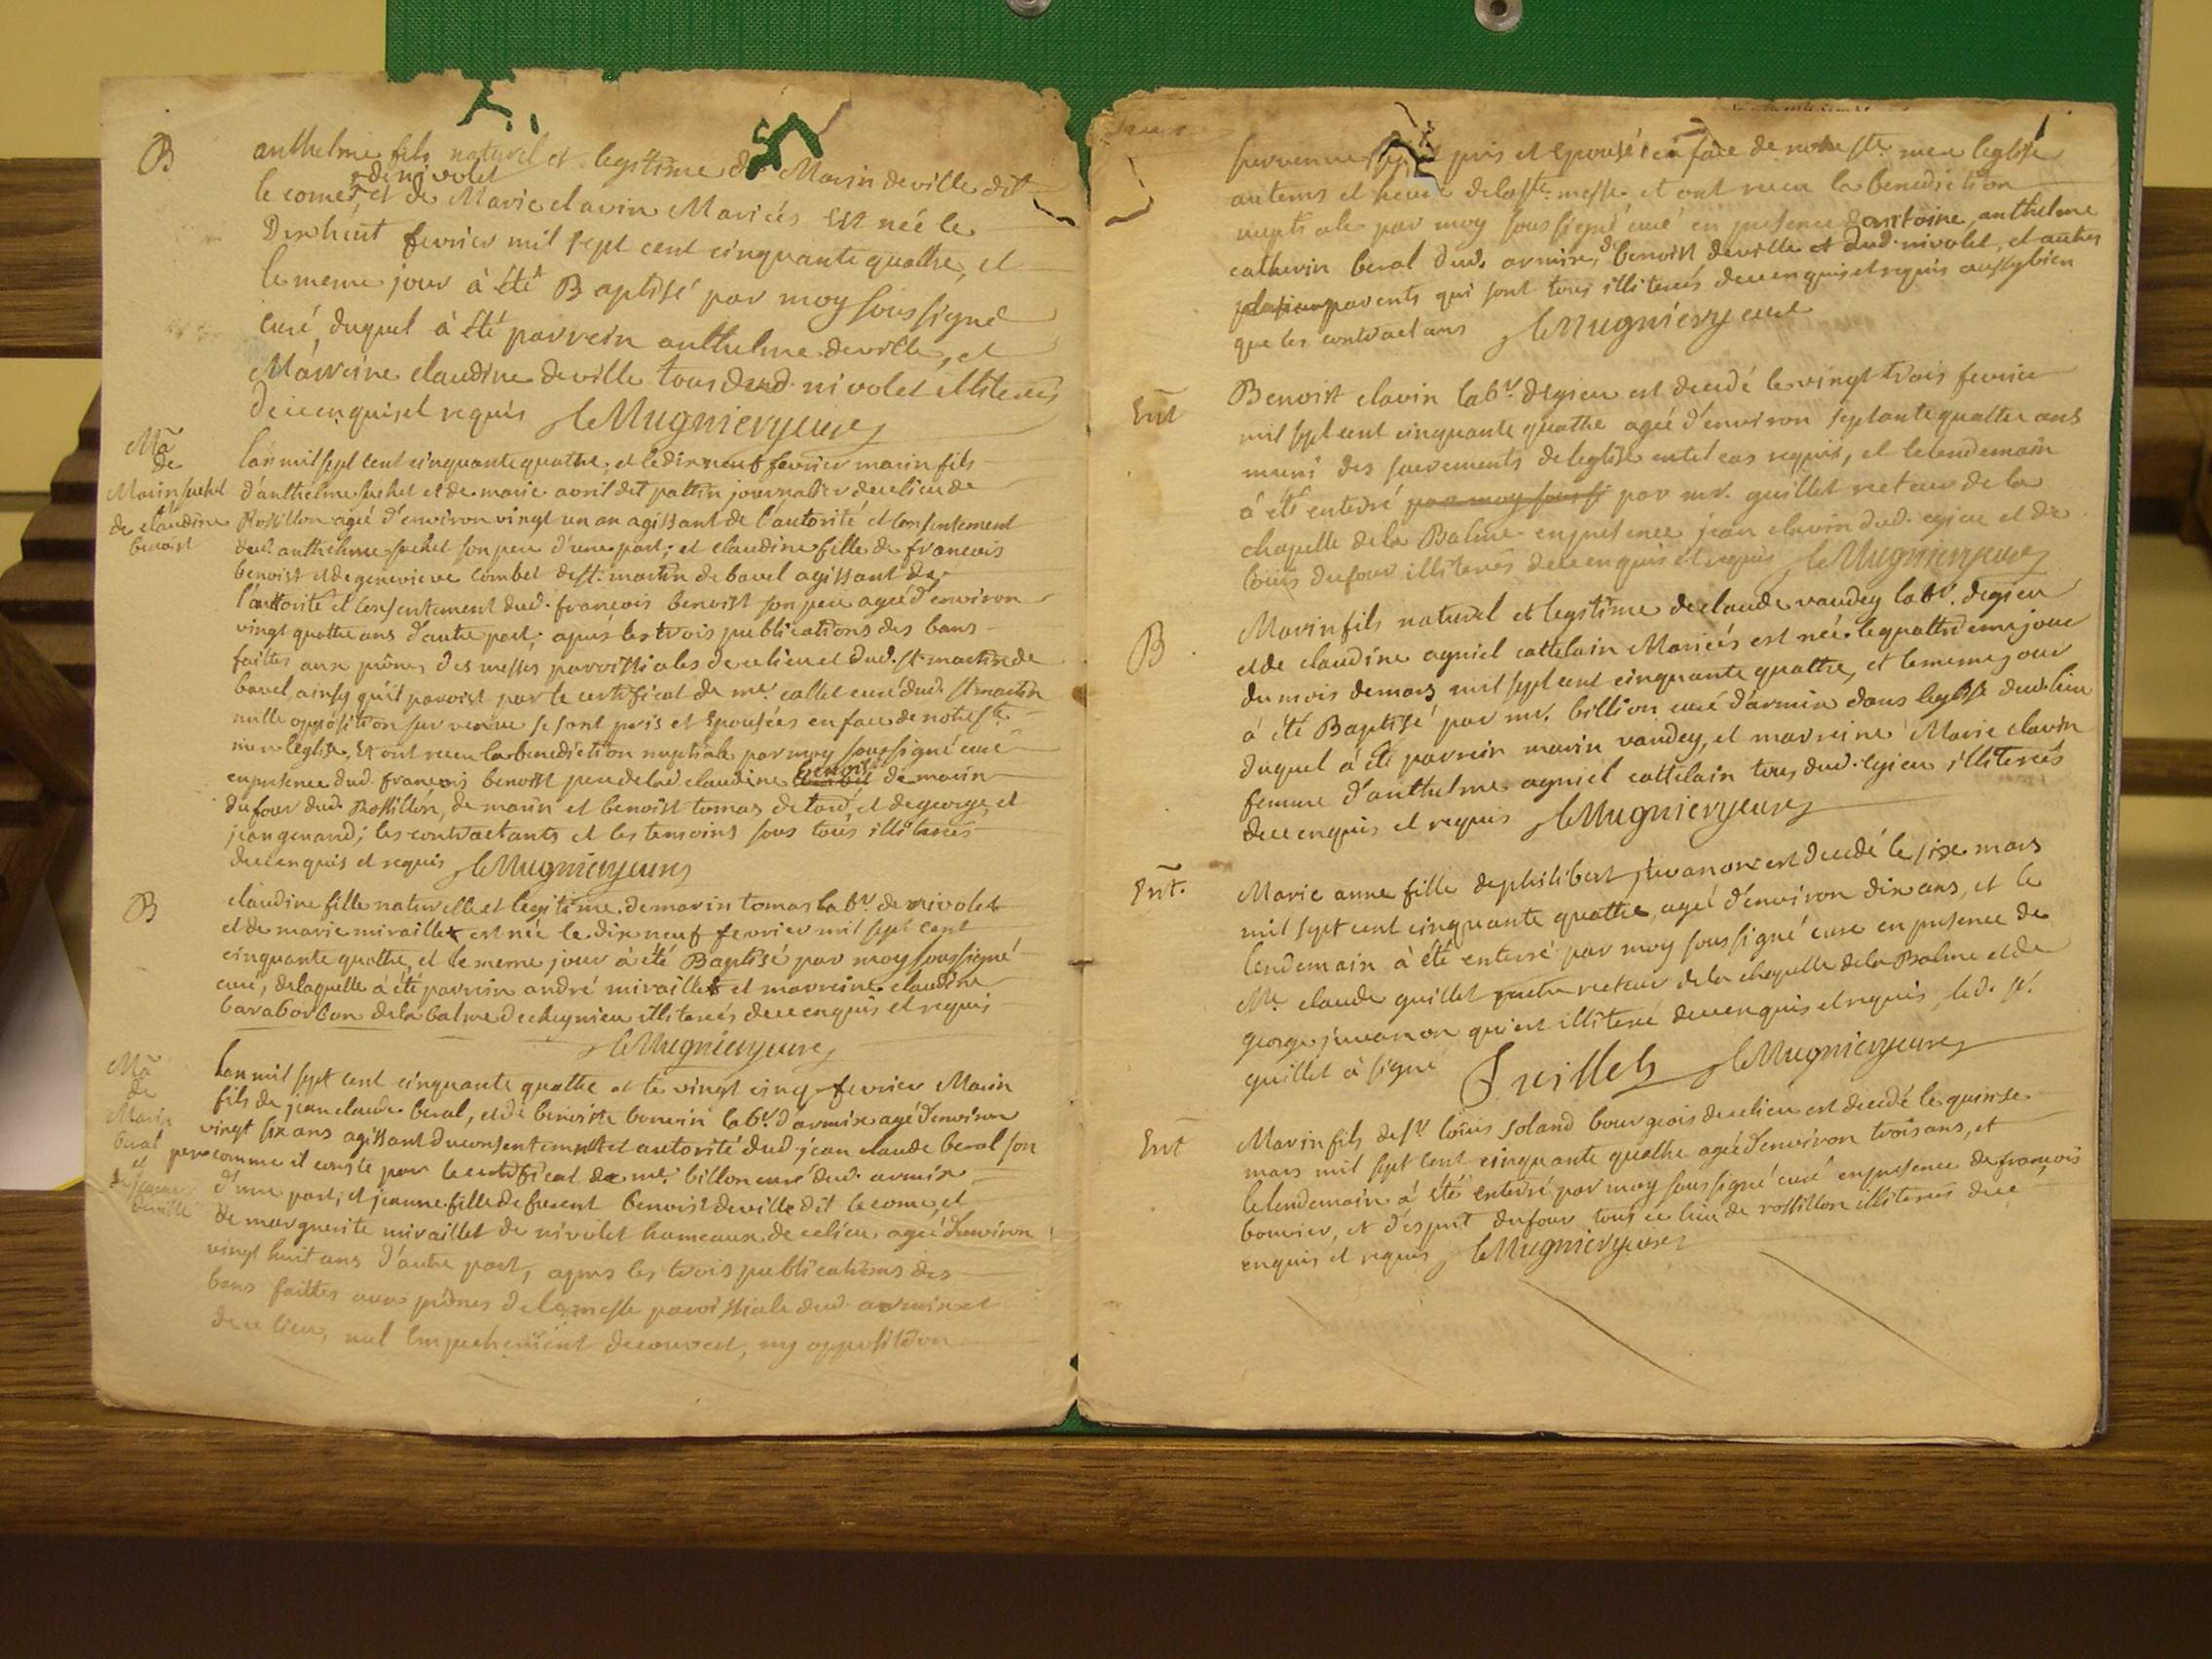 B
anthelme fils naturel et legitime de Marin deville dit
de nivolet
le comes, et de Marie clavin Mariés Est née le
Dixhuit fevrier mil sept cent cinquante quatthe, et
le meme jour à été Baptisé par moy sous signé
curé, duquel à été parrein anthelme deville, et
Marreine claudine deville tous dud. nivolet illiterés
de ce enquis et requis le Mugnier y curé
Ma
de
Marin suchet
de claudine
benoist
l'an mil sept cent cinquante quatthe, et le dix neuf fevrier marin fils
d'anthelme suchet et de marie avril dit pattin journalier de ce lieu de
Rossillon agé d'environ vingt un an agissant de l'autorité et consentement
dud. anthelme suchet son pere d'une part; et claudine fille de francois
benoist et de genevieve combet de st. martin de bavel agissant de
l'autorité et consentement dud. francois benoist son pere ageé d'environ
vingt quatthe ans d'autre part; aprés les trois publications des bans
faittes aux prônes des messes parroissiales de ce lieu et dud. st martin de
bavel, ainsy qu'il paroist par le certificat de mr. callet curé dud. st martin
nulle opposition survenue se sont pris et Epousées en face de notre ste.
mere leglise, Et ont receu la benediction nuptiale par moy soussigné curé
en presence dud. francois benoist pere de lad. claudine benoist de marin
dufour dud. Rossillon, de marin et benoist tomas de tard, et de george, et
jean genand; les contractants et les temoins sous tous illiterés
de ce enquis et requis le Mugnier y curé
B
claudine fille naturelle et legitime de marin tomas labr. de nivolet
et de marie miraillet est née le dix neuf fevrier mil sept cent
cinquante quatthe, et le meme jour à été Baptisé par moy soussigné
curé, de laquelle à été parrein andré miraillet et marreine claudine
de la balme de cheynieu illiterés de ce enquis et requis
le Mugnier y curé
Ma
de
Marin
beral
et
de jeanne
deville
L'an mil sept cent cinquante quatthe et le vingt cinq fevrier Marin
fils de jean claude beral, et de benoiste bouvin labr. d'armix agé d'environ
vingt six ans agissant du consentement et autorité dud. jean claude beral son
pere comme il conste par le certificat de mr. billon curé dud. armix
d'une part; et jeanne fille de fuent benoist deville dit le come, et
de marguerite miraillet de nivolet hameaux de ce lieu ageé d'environ
vingt huit ans d'autre part, apres les trois publications des
bans faittes aux prônes de la messe parroissiale dud. armix et
de ce lieu, nul Empechement decouvert, ny opposition
survenue pris et Epousé en face de notre ste. mere leglise
au tems et heure de la ste. messe, et ont receu la benediction
nuptiale par moy sous signé curé en presence d'antoine, anthelme
catherin beral dud. armix, de benoist deville et dud. nivolet, et autres
parents qui sont tous illiterés de ce enquis et requis aussy bien
que les contractans le Mugnier y curé
Ent
Benoist clavin labr. degieu est decedé le vingt trois fevrier
mil sept cent cinquante quatthe ageé d'environ septante quatthe ans
muni des sacrements de leglise en tel cas requis, et le lendemain
à été enterré par moy soussi par mr. guillet recteur de la
chapelle de la Balme en presence jean clavin dud. egieu et de
louis dufour illiterés de ce enquis et requis le Mugnier y curé
B
Marin fils naturel et legitime de claude vandey labr. degieu
et de claudine agniel cattelain Mariés est née le quattriemejour
du mois de mars mil sept cent cinquante quatthe, et le meme jour
à été Baptisé par mr. billion curé d'armix dans leglise dud. lieu
duquel à été parrein marin vandey, et marreine Marie clavin
femme d'anthelme agniel cattelain tous dud. egieu illiterés
de ce enquis et requis le Mugnier y curé
Ent.
Marie anne fille de philibert juvanon est decedé le six mars
mil sept cent cinquante quatthe, ageé d'environ dix ans, et le
lendemain à été enterré par moy sous signé curé en presence de
Mr. claude guillet prettre recteur de la chapelle de la Balme et de
george juvanon qui est illiteré de ce enquis et requis, led. sr.
guillet à signé Guillet le Mugnier y curé
Ent
Marin fils de sr. louis soland bourgeois de ce lieu est decedé le quinse
mars mil sept cent cinquante quatthe ageé d'environ trois ans, et
le lendemain à été enterré par moy sous signé curé en presence de francois
bouvier, et d'esprit dufour tous ce lieu de rossillon illiterés de ce
enquis et requis le Mugnier y curé